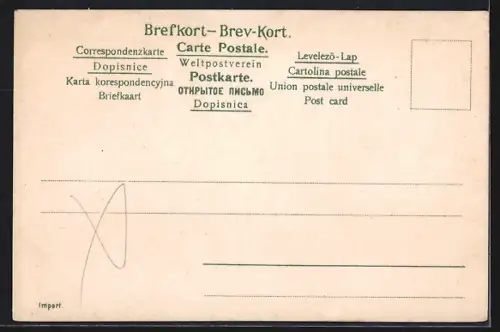 Brefkort–Brev-Kort.
Correspondenzkarte
Dopisnice
Karta korespondencyjna
Briefkaart
Carte Postale.
Weltpostverein
Postkarte.
ОТКРЫТОЕ ПИСЬМО
Dopisnica
Levelező-Lap
Cartolina postale
Union postale universelle
Post card
Import.